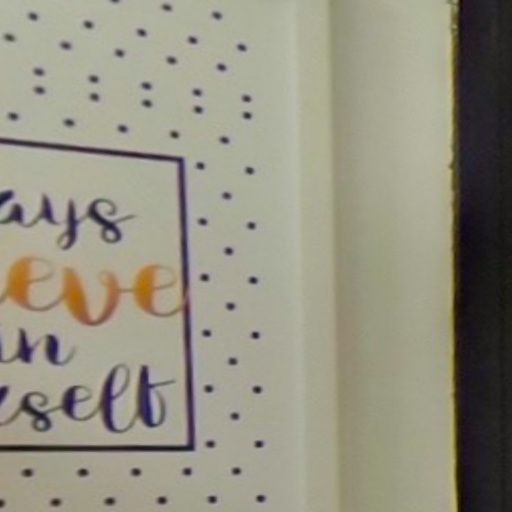 ays
eve
in
rself